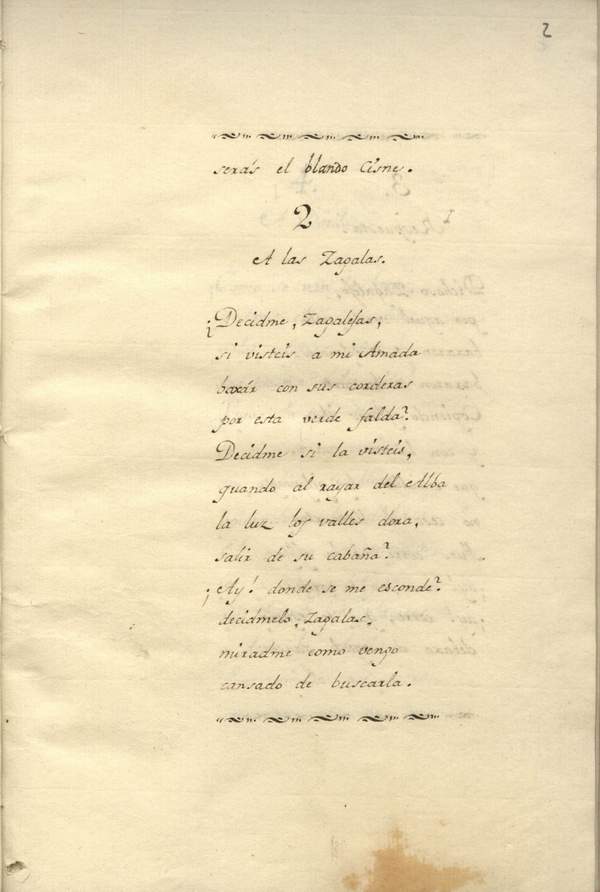 2
serás el blando Cisne.
2
A las Zagalas.
¿Decidme, Zagalejas,
si visteis a mi Amada
baxár con sus corderas
por esta verde falda?
Decidme si la visteis,
quando al rayar del Alba
la luz los valles dora,
salir de su cabaña?
¡Ay! donde se me esconde?
decidmelo, Zagalas,
miradme como vengo
cansado de buscarla.